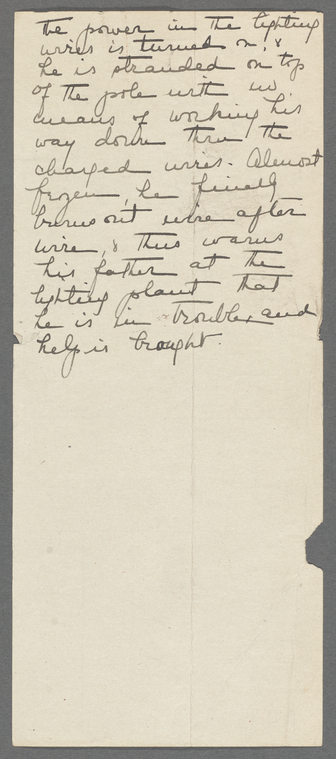 the power in the lighting
wires is turned on, &
he is stranded on top
of the pole with no
means of working his
way down thru the
charged wires. Almost
frozen, he finally
burns out wire after
wire, & thus warns
his father at the
lighting plant that
he is in trouble, and
help is brought.